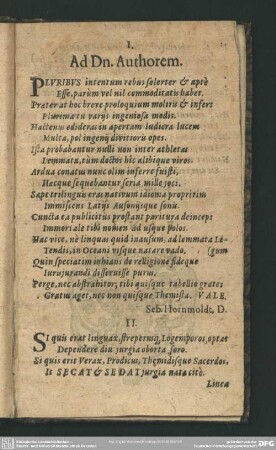 I.
Ad Dn. Authorem.
PLURIBUS intentum rebus solerter & aptè
Esse, parùm vel nil commoditatis habet.
Præterat hoc breve proloquium moliris & infers
Plurima tu varijs ingeniosa modis.
Hactenus edideras in apertam ludicra lucem
Multa, pol ingenij divitioris opes.
Ista probabantur nulli non inter athletas
Lemmata, tùm doctos hîc alibique viros.
Ardua conatus nunc olim inferre fuisti,
Hæcque sequebantur seria mille joci.
Sæpe trilinguis eras nativum idioma propriim
Immiscens Latijs Ausonijsque sonis.
Cuncta ea publicitùs prostant paritura deinceps
Immortale tibi nomen ad usque polos.
Hac vice, nè linquas quid inausum, ad lemmata Le-
Tendis, in Oceani visque natare vado. (gum
Quin speciatim inhians de relligione fideque
Iurisjurandi disseruisse purus.
Perge, nec abstrahitor; tibi quisque tabellio grates
Gratus aget, nec non quisque Themista. VALE.
Seb. Hornmoldt, D.
II.
SI quis erat linguax, strepermq́, Logemporos, optat
Dependere diu jurgia oborta foro.
Si quis erit Verax, Prodicus, Themidisque Sacerdos,
Is SECAT & SEDAT jurgia nata citò.
Linea